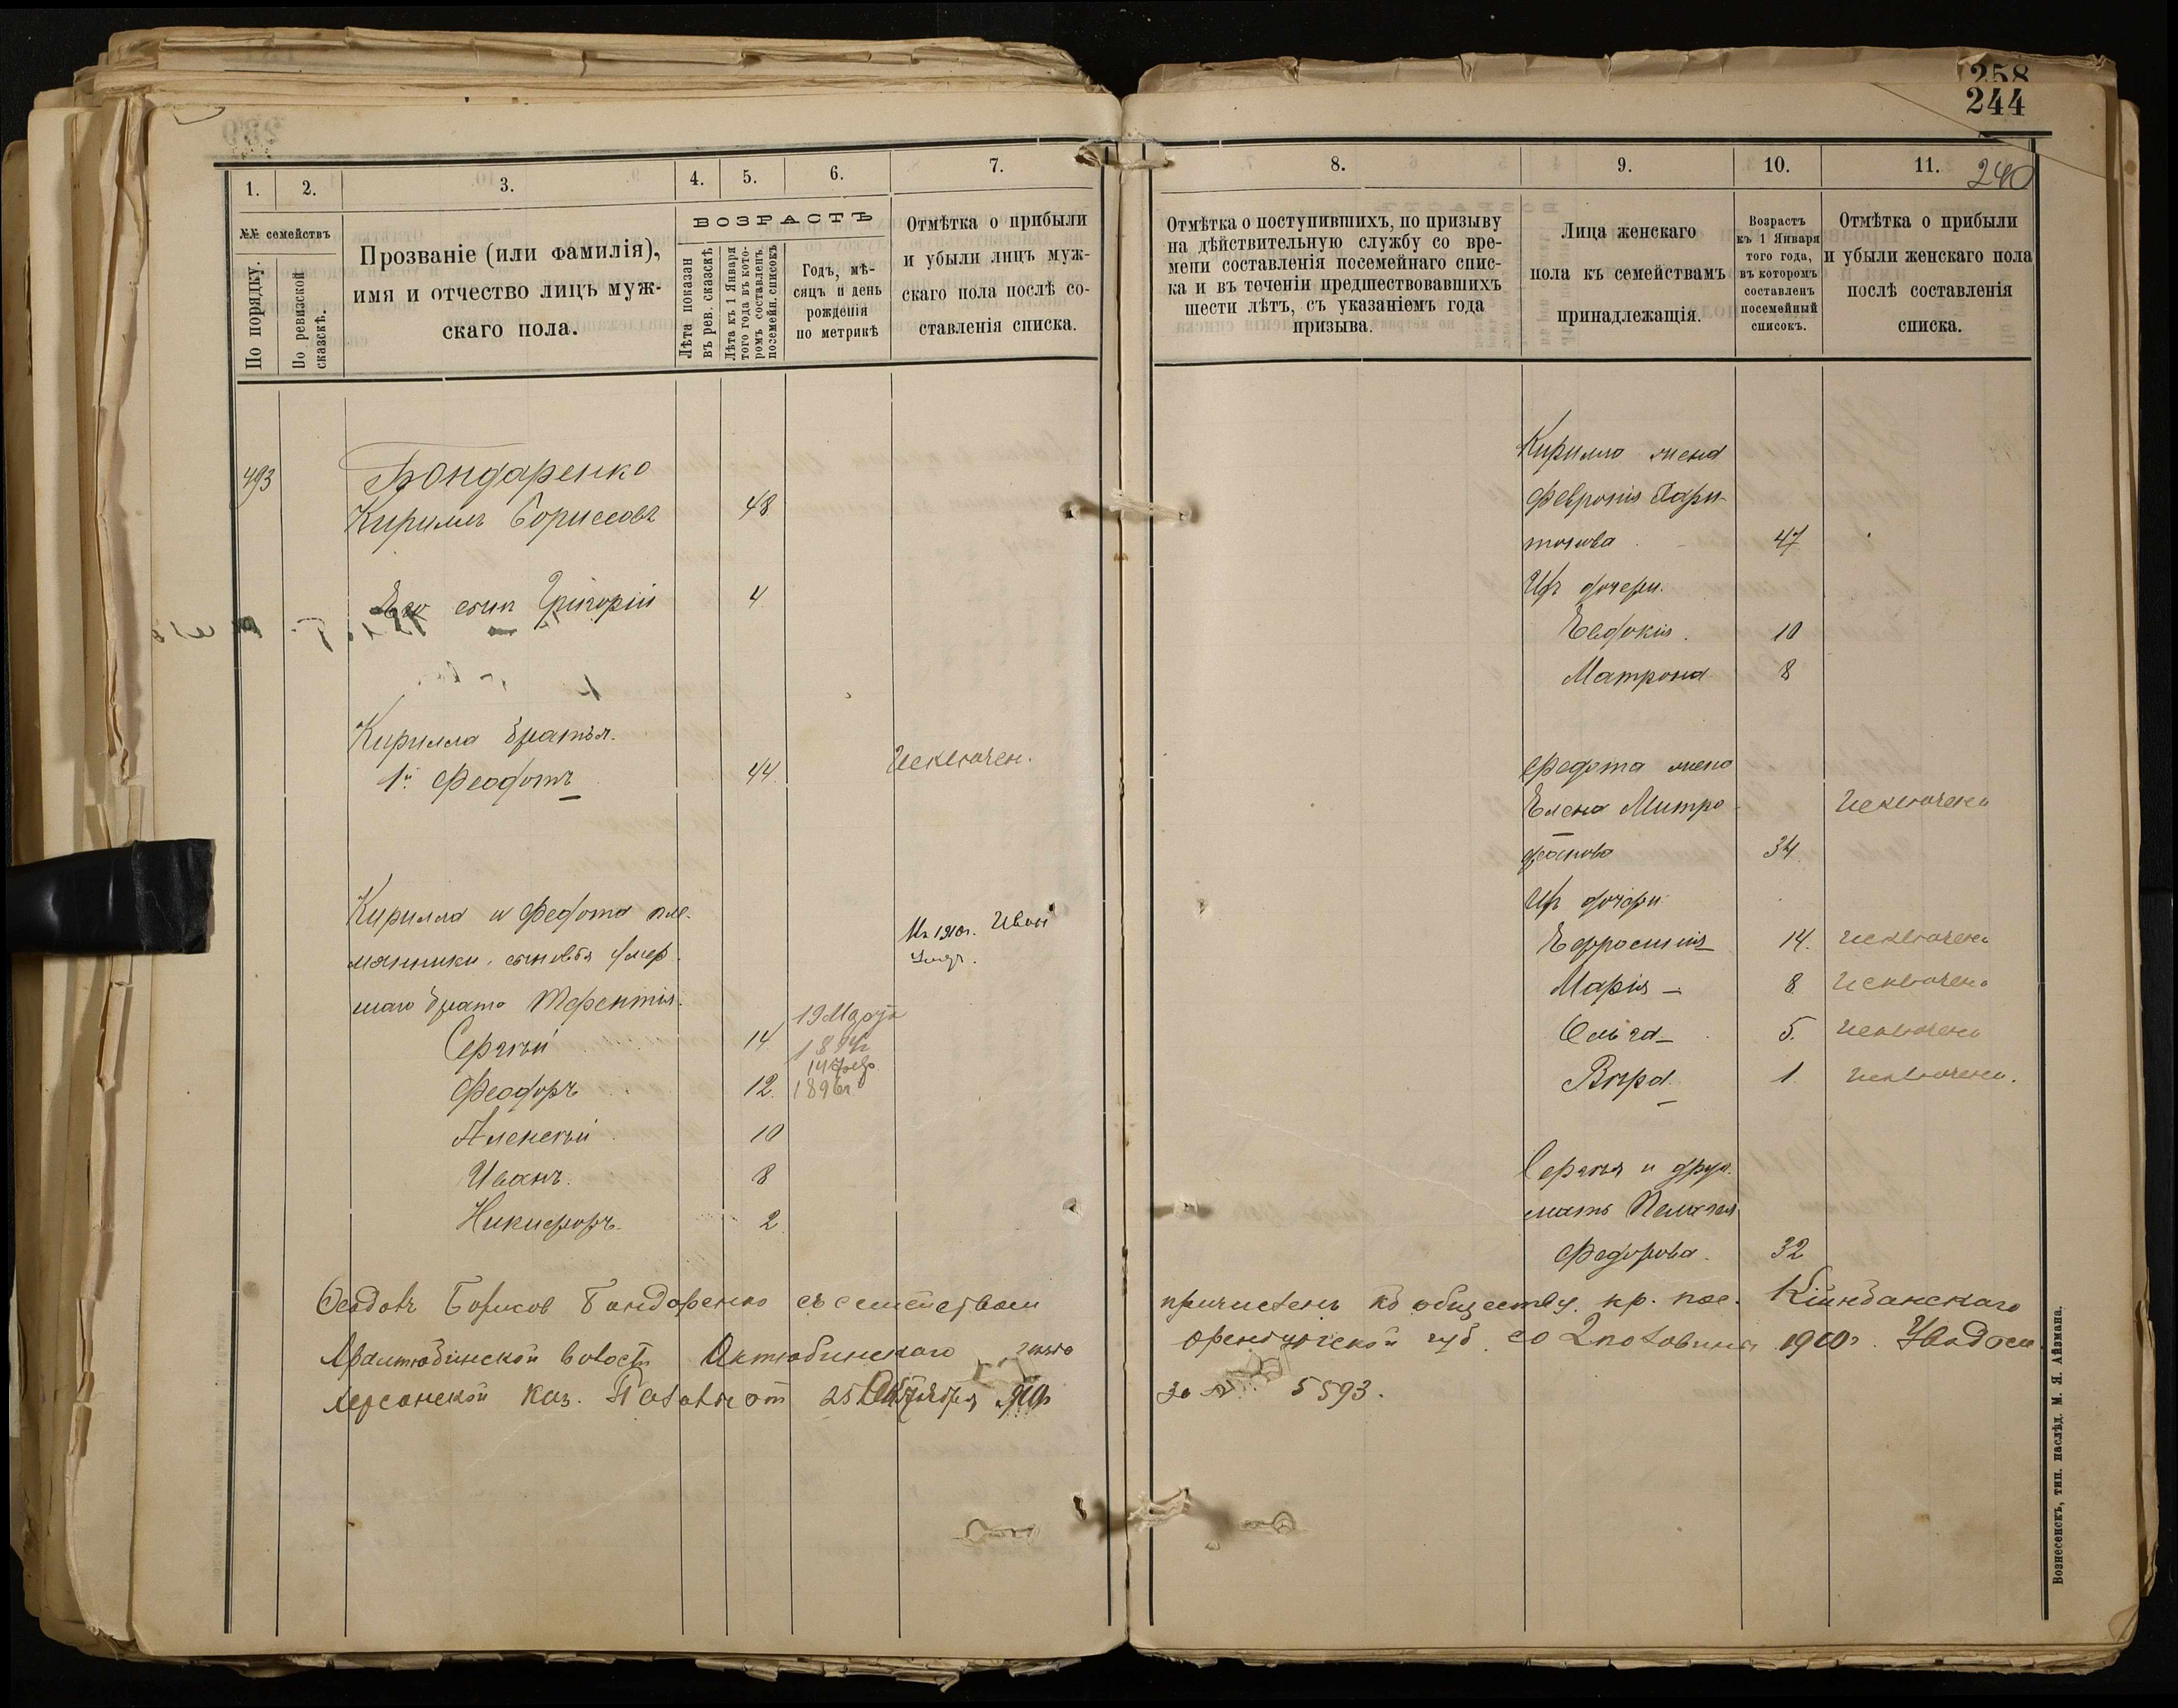 258
244
240
1.
2.
3.
4.
5.
6.
7.
№№ семействъ
По порядку.
По ревизской сказскѣ.
Прозваніе (или фамилія),
имя и отчество лицъ муж-
скаго пола.
ВОЗРАСТЪ
Лѣта показан
въ рев. сказскѣ
Лѣта къ 1 Января
того года въ кото-
ромъ составленъ
посемейн. списокъ
Годъ, мѣ-
сяцъ и день
рожденія
по метрикѣ
Отмѣтка о прибыли
и убыли лицъ муж-
скаго пола послѣ со-
ставленія списка.
493
Бондаренко
Кириллъ Борисовъ 48
Его сынъ Григорій 4
Кирилла братья.
1й Феодотъ 44 Исключен.
Кирилла и Федота пле-
мянники, сыновья умер
шаго брата Терентія.
Сергѣй 14
Феодоръ 12
1896г.
Алексѣй 10
Иванъ. 8
Никифоръ 2
1910г. Иван
Феодотъ Борисов Бондаренко съ семействомъ
волости Актюбинского
Херсонской Каз. Палаты от 25 Октября
8.
9.
10.
11.
Отмѣтка о поступившихъ, по призыву
на дѣйствительную службу со вре-
мени составленія посемейнаго спис-
ка и въ теченіи предшествовавшихъ
шести лѣтъ, съ указаніемъ года
призыва.
Лица женскаго
пола къ семействамъ
принадлежащія.
Возрастъ
къ 1 Января
того года,
въ которомъ
составленъ
посемейный
списокъ.
Отмѣтка о прибыли
и убыли женскаго пола
послѣ составленія
списка.
Кирилла жена
Февронія Хари-
тонова 47
Ихъ дочери.
Евдокія. 10
Матрона 8
Федота жена
Елена Митро- Исключена
фанова 34
Ихъ дочери
Ефросинія 14. исключена
Марія 8. Исключена
Ольга 5. исключена
Вѣра. 1. исключена.
Сергѣя и друг.
мать Пелагея
Федорова. 32
причислен къ обществу кр. пос.
Оренбургской губ. со 2 половины 1910г.
за № 5593.
Вознесенскъ, тип. наслѣд. М. Я. Айзмана.